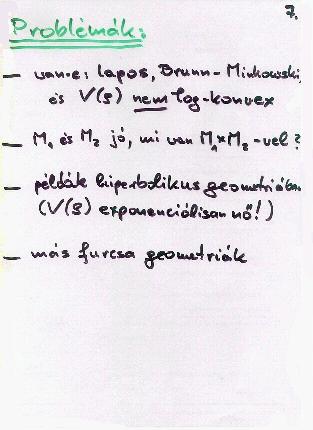 7.
Problémák:
– van-e: lapos, Brunn-Minkowski,
és V(ρ) nem log-konvex
– M₁ és M₂ jó, mi van M₁×M₂-vel?
– példák hiperbolikus geometriában
(V(ρ) exponenciálisan nő!)
– más furcsa geometriák